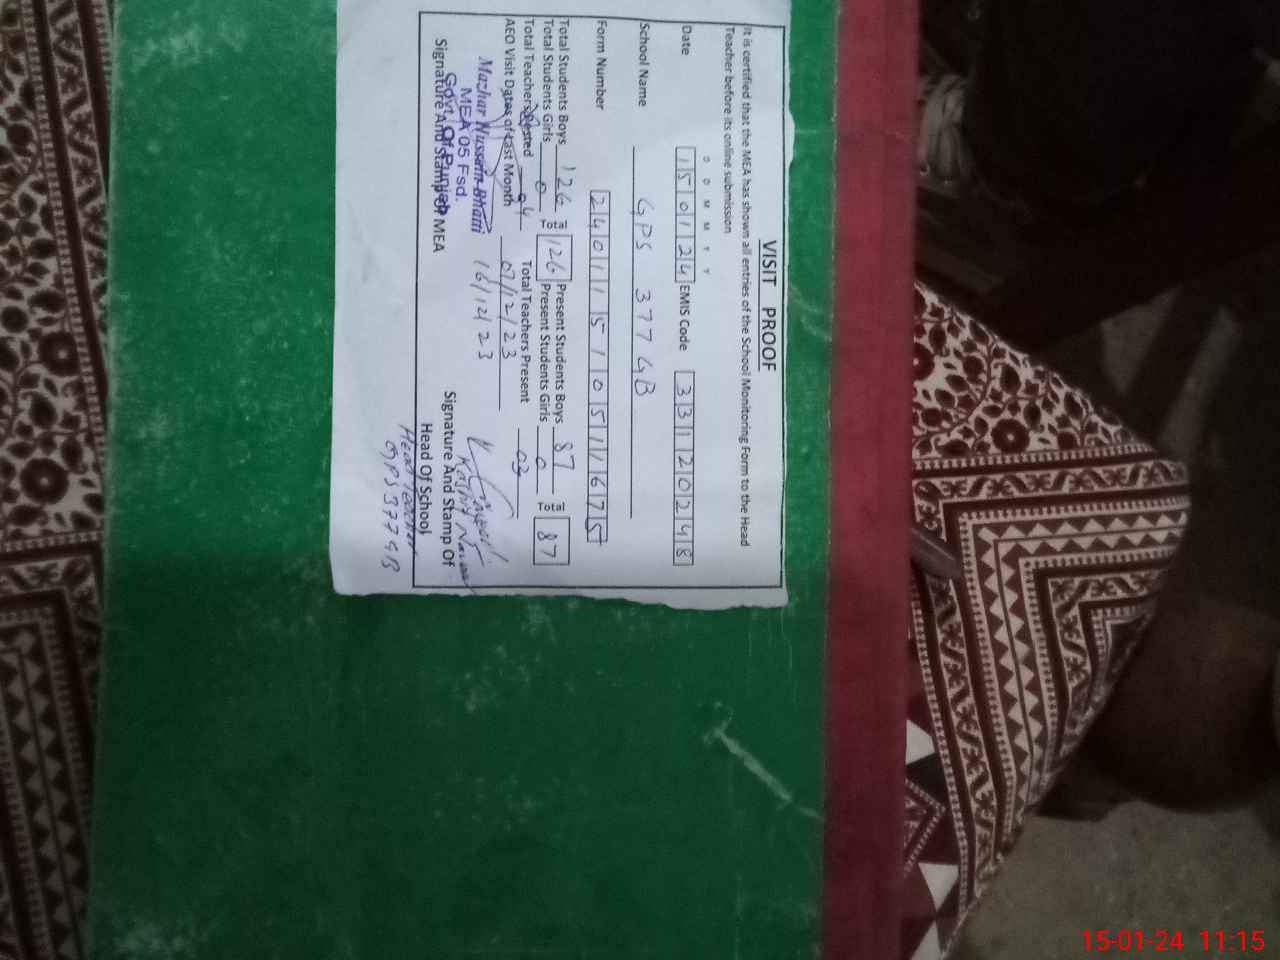 VISIT PROOF
It is certified that the MEA has shown all entries of the School Monitoring Form to the Head
Teacher before its online submission
D D M M Y Y
Date 150124 EMIS Code 33120248
School Name GPS 377 GB
Form Number 24011510511675
Total Students Boys 126 Total 126 Present Students Boys 87 Total 87
Total Students Girls 0 Present Students Girls 0
Total Teachers Posted 04 Total Teachers Present 03
AEO Visit Dates of Last Month 07/12/23
16/12/23
Mazhar Hussain Bhatti
MEA 05 Fsd.
Govt. Of Punjab
Signature And Stamp Of MEA
Kashif
Signature And Stamp Of
Head Of School
Head Teacher
GPS 377 GB
15-01-24 11:15